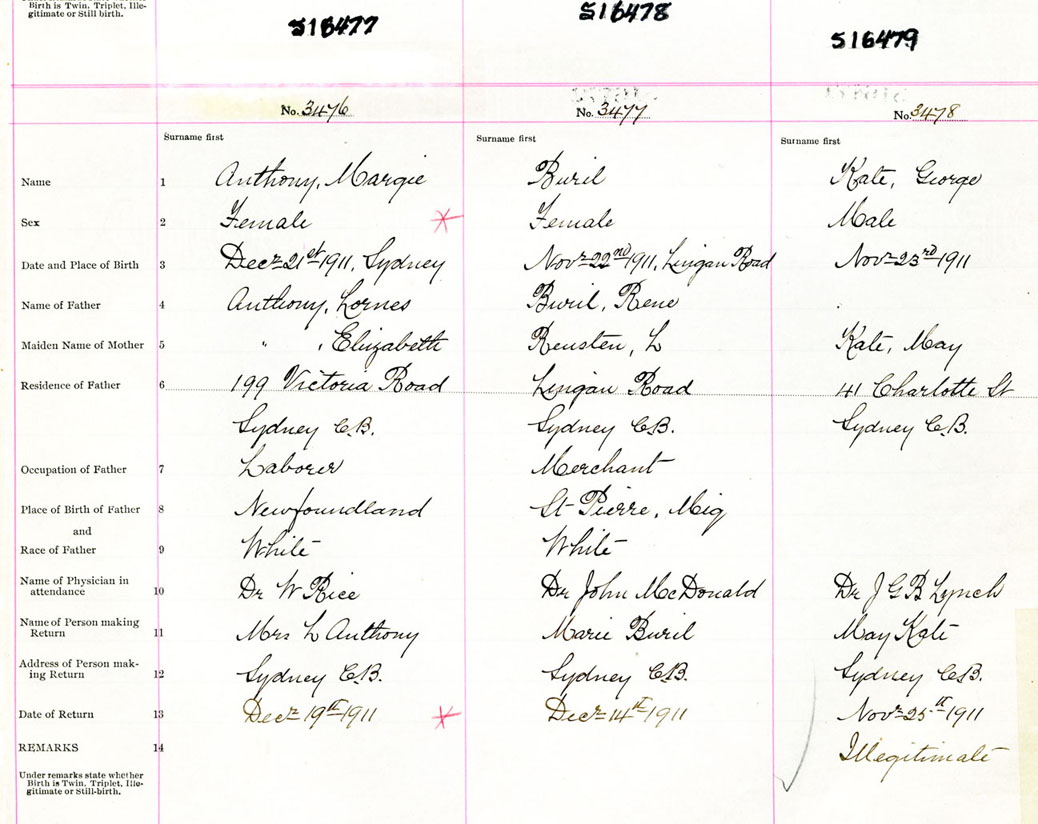 Birth is Twin, Triplet, Ille-
gitimate or Still birth.
S16477 S16478 S16479
No. 3476 No. 3477 No. 3478
Surname first Surname first Surname first
Name 1 Anthony, Margie Buril Kate, George
Sex 2 Female Female Male
Date and Place of Birth 3 Decr 21st 1911, Sydney Novr 22nd 1911, Lingan Road Novr 23rd 1911
Name of Father 4 Anthony, Lornes Buril, Rene
Maiden Name of Mother 5 " , Elizabeth Reusten, L Kate, May
Residence of Father 6 199 Victoria Road Lingan Road 41 Charlotte St
Sydney C.B. Sydney C.B. Sydney C.B.
Occupation of Father 7 Laborer Merchant
Place of Birth of Father 8 Newfoundland St Pierre, Miq
and
Race of Father 9 White White
Name of Physician in
attendance 10 Dr W Rice Dr John McDonald Dr J G B Lynch
Name of Person making
Return 11 Mrs L Anthony Marie Buril May Kate
Address of Person mak-
ing Return 12 Sydney C.B. Sydney C.B. Sydney C.B.
Date of Return 13 Decr 19th 1911 Decr 14th 1911 Novr 25th 1911
REMARKS 14 Illegitimate
Under remarks state whether
Birth is Twin, Triplet, Ille-
gitimate or Still-birth.